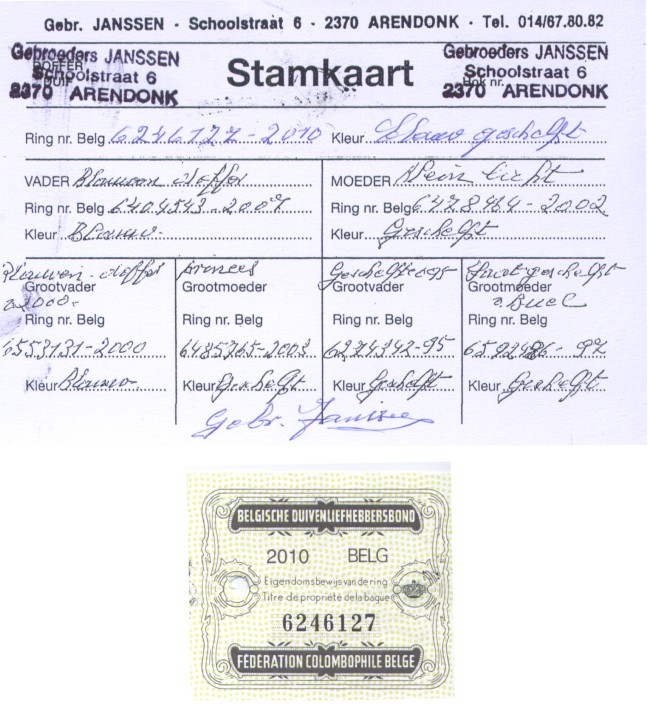 Gebr. JANSSEN - Schoolstraat 6 - 2370 ARENDONK - Tel. 014/67.80.82
Gebroeders JANSSEN
Schoolstraat 6
2370 ARENDONK
DOFFER
DUIF
Stamkaart
Gebroeders JANSSEN
Schoolstraat 6
2370 ARENDONK
Hok nr.
Ring nr. Belg 6246127-2010 Kleur Blauw geschelft
VADER Blauwen doffer
Ring nr. Belg 6404543-2007
Kleur Blauw
MOEDER Klein licht
Ring nr. Belg 6478984-2002
Kleur Geschelft
Blauwen doffer
Grootvader
2000
Ring nr. Belg
6553131-2000
Kleur Blauw
Prinses
Grootmoeder
Ring nr. Belg
6485765-2003
Kleur Geschelft
Grootvader
Ring nr. Belg
6274342-95
Kleur Geschelft
Grootmoeder
Ring nr. Belg
Kleur Geschelft
Gebr. Janssen
BELGISCHE DUIVENLIEFHEBBERSBOND
2010 BELG
Eigendomsbewijs van de ring
Titre de propriété de la bague
6246127
FÉDÉRATION COLOMBOPHILE BELGE